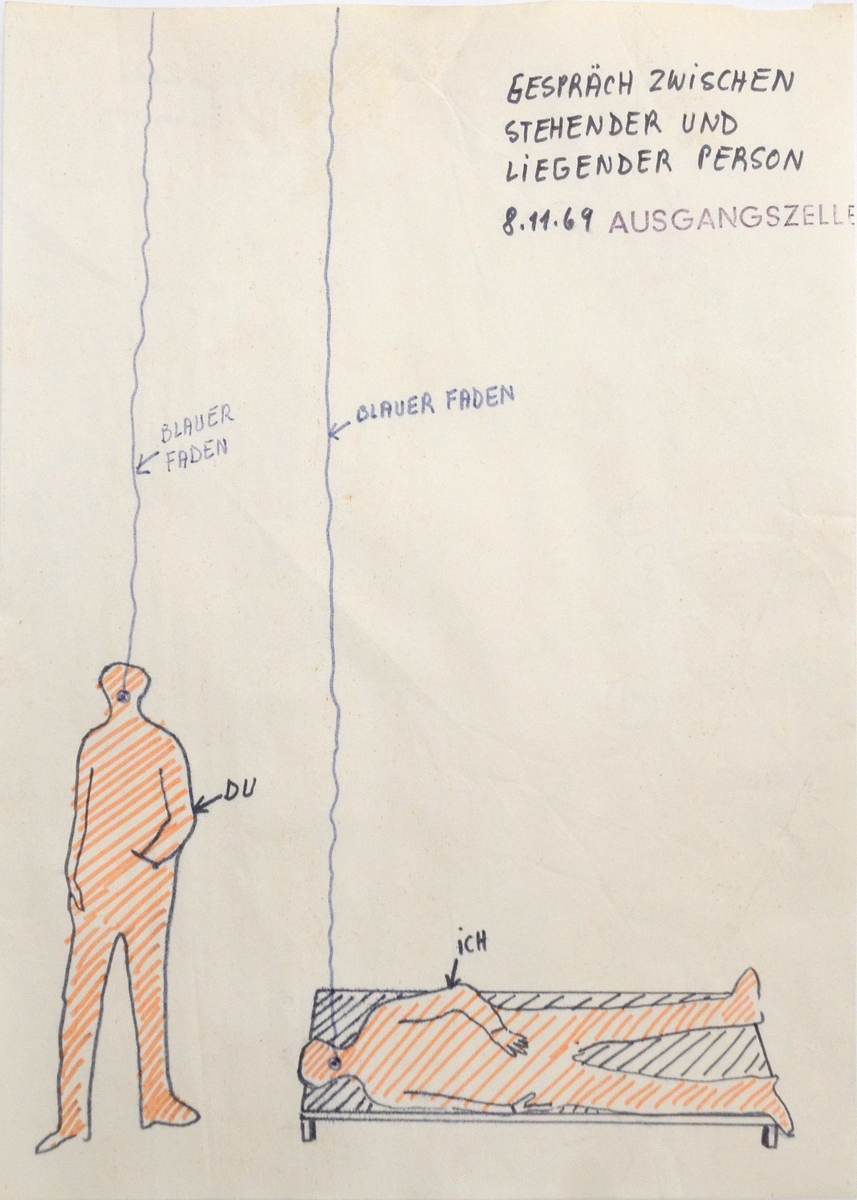 GESPRÄCH ZWiSCHEN
STEHENDER UND
LiEGENDER PERSON
8.11.69 AUSGANGSZELLE
BLAUER FADEN
BLAUER
FADEN
DU
iCH